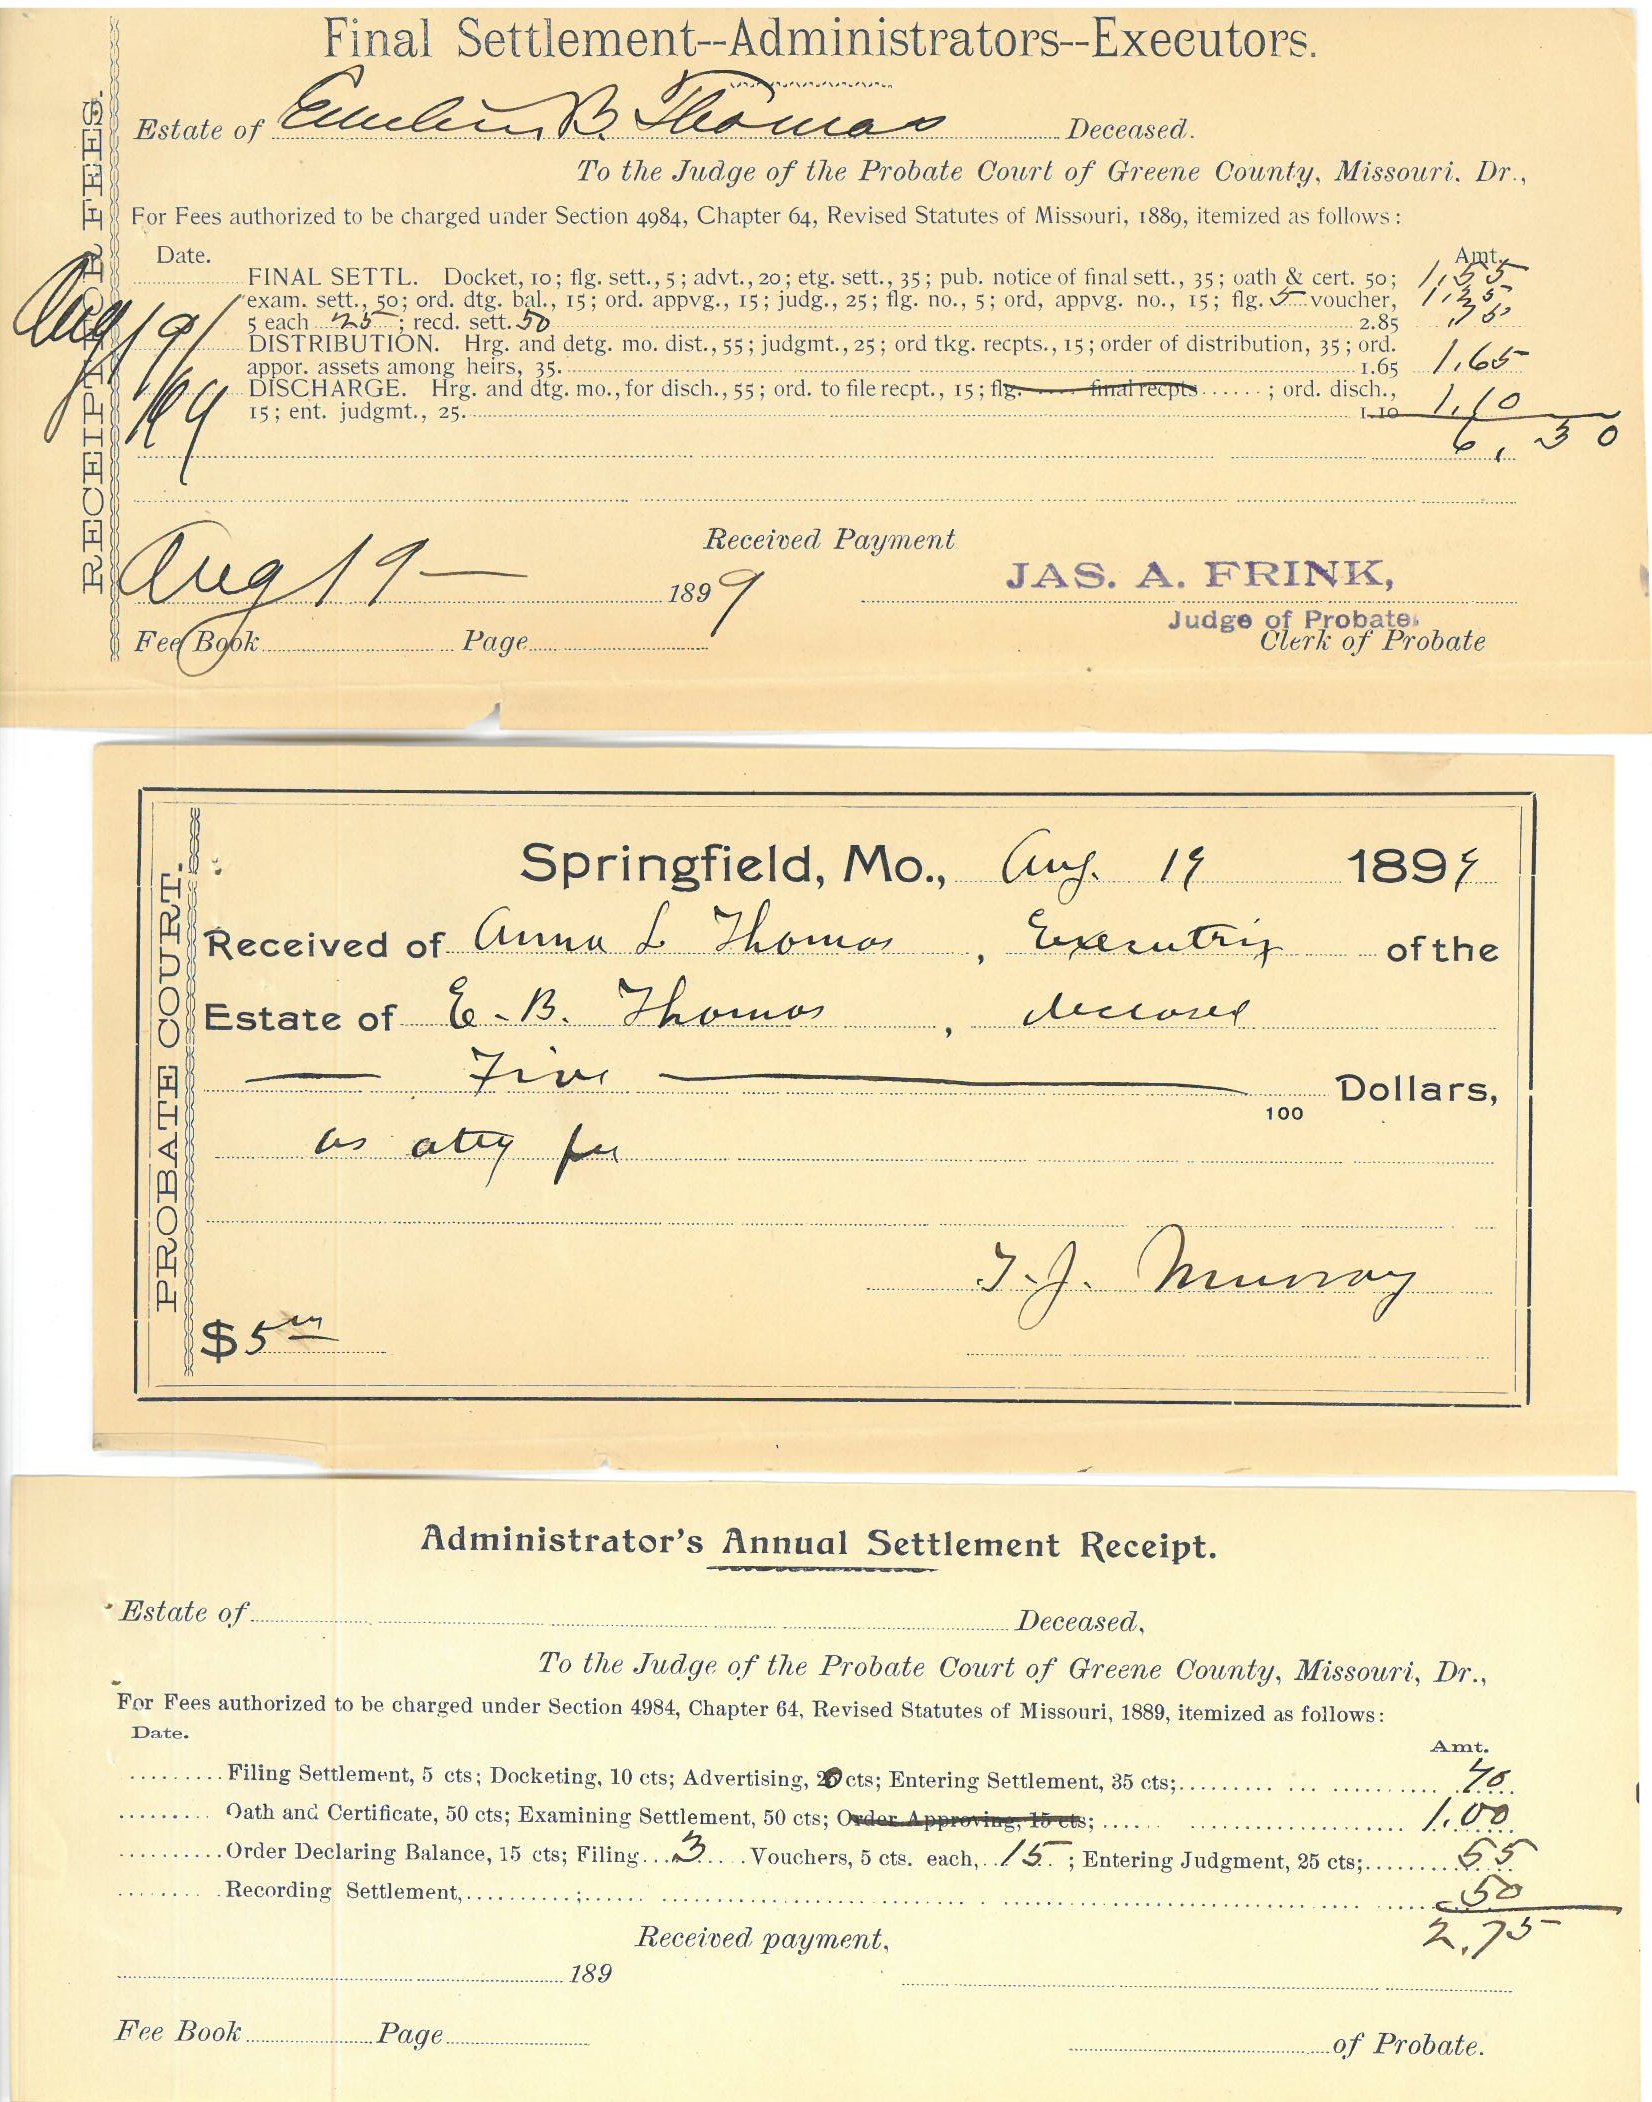 Final Settlement--Administrators--Executors.
RECEIPT FOR FEES.
Estate of Emeline B. Thomas Deceased.
To the Judge of the Probate Court of Greene County, Missouri. Dr.,
For Fees authorized to be charged under Section 4984, Chapter 64, Revised Statutes of Missouri, 1889, itemized as follows:
Date. Amt.
FINAL SETTL. Docket, 10; flg. sett., 5; advt., 20; etg. sett., 35; pub. notice of final sett., 35; oath & cert. 50; 1,55
exam. sett., 50; ord. dtg. bal., 15; ord. appvg., 15; judg., 25; flg. no., 5; ord, appvg. no., 15; flg. 5 voucher, 1,25
5 each 25; recd. sett. 50 2.85 ,75
Aug 19/99
DISTRIBUTION. Hrg. and detg. mo. dist., 55; judgmt., 25; ord tkg. recpts., 15; order of distribution, 35; ord.
appor. assets among heirs, 35. 1.65 1,65
DISCHARGE. Hrg. and dtg. mo., for disch., 55; ord. to file recpt., 15; flg. final recpts ; ord. disch.,
15; ent. judgmt., 25. 1.10 1,10
6,30
Received Payment
Aug 19 1899
JAS. A. FRINK,
Judge of Probate.
Fee Book Page Clerk of Probate
PROBATE COURT.
Springfield, Mo., Aug. 19 1899
Received of Anna L Thomas, Executrix of the
Estate of E. B. Thomas, deceased
Five Dollars,
100
as atty fee
T. J. Murray
$5
Administrator's Annual Settlement Receipt.
Estate of Deceased,
To the Judge of the Probate Court of Greene County, Missouri, Dr.,
For Fees authorized to be charged under Section 4984, Chapter 64, Revised Statutes of Missouri, 1889, itemized as follows:
Date.
Amt.
Filing Settlement, 5 cts; Docketing, 10 cts; Advertising, 20 cts; Entering Settlement, 35 cts; 70
Oath and Certificate, 50 cts; Examining Settlement, 50 cts; Order Approving, 15 cts; 1.00
Order Declaring Balance, 15 cts; Filing 3 Vouchers, 5 cts. each, 15; Entering Judgment, 25 cts; 55
Recording Settlement, ; 50
2.75
Received payment,
189
Fee Book Page of Probate.